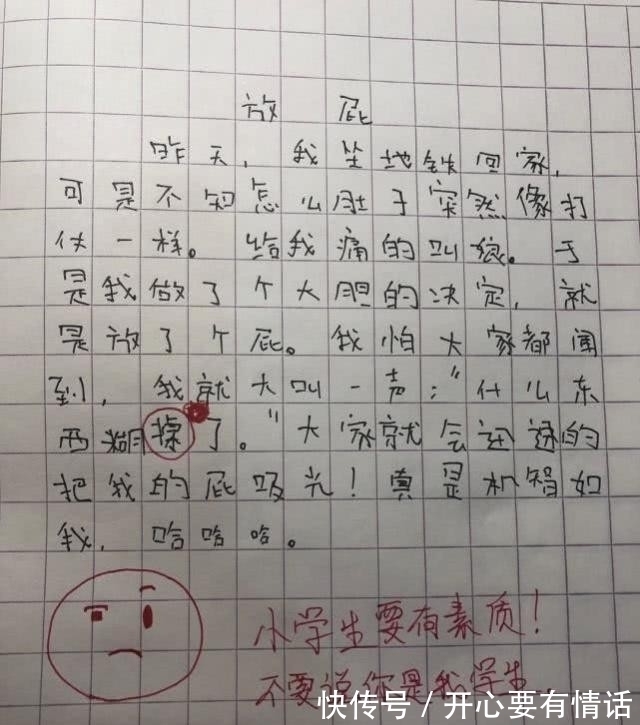 放屁
昨天，我坐地铁回家，
可是不知怎么肚子突然像打
仗一样。给我痛的叫狼。于
是我做了个大胆的决定，就
是放了个屁。我怕大家都闻
到，我就大叫一声："什么东
西糊操了。"大家就会迅速的
把我的屁吸光！真是机智如
我，哈哈哈。
小学生要有素质！
不要说你是我学生
快传号/开心要有情话